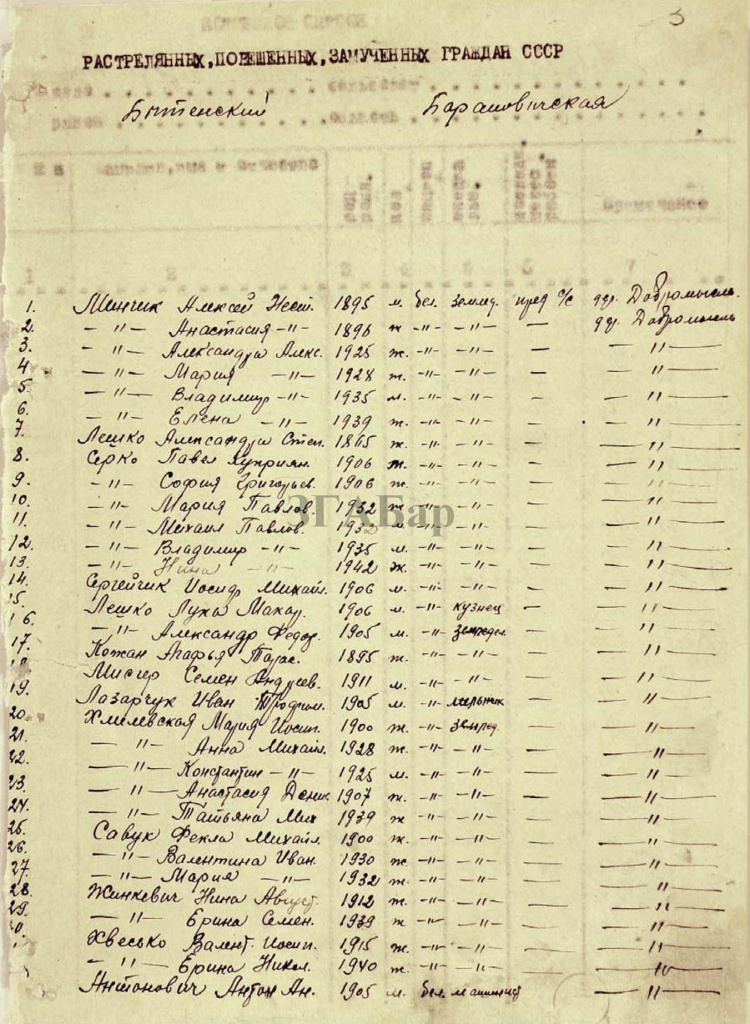 3
ПОИМЕННОЕ СПИСОК
РАСТРЕЛЯННЫХ, ПОВЕШЕННЫХ, ЗАМУЧЕННЫХ ГРАЖДАН СССР
Бытенский Барановичская
район область
фамилия, имя и отчество год рожд. пол примечание
1 2 3 4 5 6 7
1. Минчик Алексей Нест. 1895 м. бел. землед. пред с/с дер. Добромысль
2. —"— Анастасия —"— 1896 ж —"— —"— — дер. Добромысль
3. —"— Александра Алекс. 1925 ж. —"— —"— — —"—
4 —"— Мария —"— 1928 ж. —"— —"— — —"—
5. —"— Владимир —"— 1935 м. —"— —"— — —"—
6. —"— Елена —"— 1939 ж. —"— —"— — —"—
7. Лешко Александра Степ. 1865 ж —"— —"— — —"—
8. Серко Павел Куприян. 1906 ж. —"— —"— — —"—
9. —"— София Григорьев. 1906 ж. —"— —"— — —"—
10. —"— Мария Павлов. 1932 ж —"— —"— — —"—
11. —"— Михаил Павлов. 193 м. —"— —"— — —"—
12. —"— Владимир —"— 1935 м. —"— —"— — —"—
13. —"— Нина —"— 1942 ж. —"— —"— — —"—
14. Сергейчик Иосиф Михайл. 1906 м. —"— —"— — —"—
15. Лешко Лука Макар. 1906 м. —"— кузнец — —"—
16. —"— Александр Федор. 1905 м. —"— землед. — —"—
17. Кожан Агафья Тарас. 1895 ж. —"— —"— — —"—
18 Мисюр Семен Андреев. 1911 м. —"— —"— — —"—
19. Лазарчук Иван Трофим. 1905 м. —"— мельник — —"—
20. Хмилевская Мария Иосип. 1900 ж. —"— землед. — —"—
21. —"— Анна Михайл. 1928 ж. —"— —"— —"—
22. —"— Константин —"— 1925 м. —"— —"— —"—
23. —"— Анастасия Денис. 1907 ж. —"— —"— —"—
24. —"— Татьяна Мих 1939 ж —"— —"— —"—
25. Савук Фекла Михайл. 1900 ж. —"— —"— —"—
26. —"— Валентина Иван. 1930 ж —"— —"— —"—
27. —"— Мария —"— 1932 ж. —"— —"— —"—
28. Жинкевич Нина Август. 1912 ж. —"— —"— —"—
29. —"— Ерина Семен. 1939 ж —"— —"— —"—
0. Хвесько Валент. Иосип. 1915 ж. —"— —"— —"—
—"— Ерина Никол. 1940 ж. —"— —"— —"—
Антонович Антон Ан. 1905 м. бел. машинист —"—
ЗГАБар